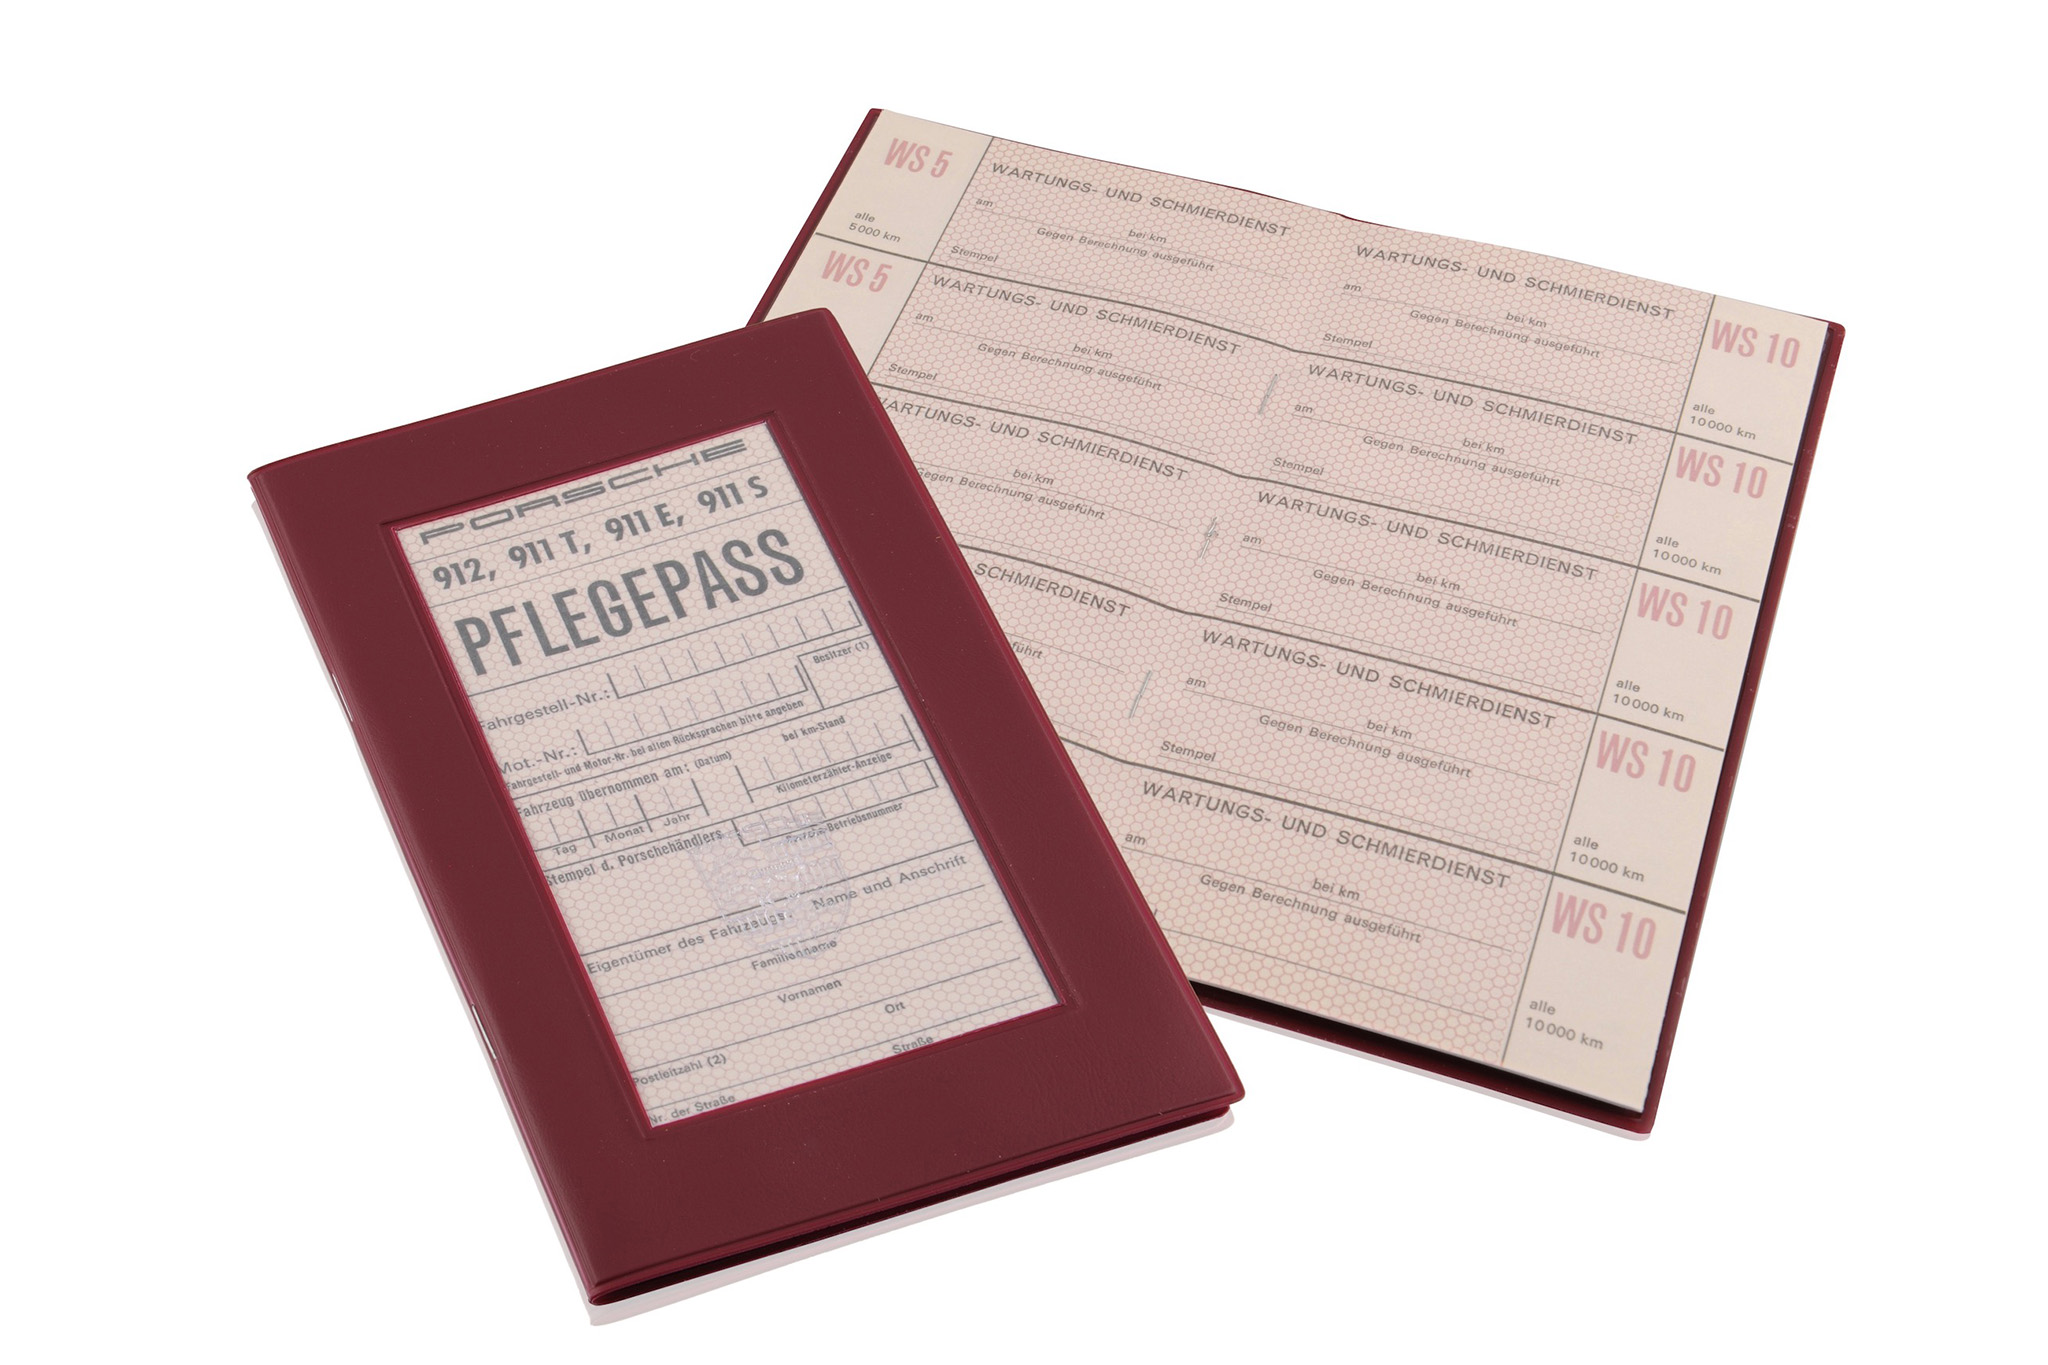 PORSCHE
912, 911 T, 911 E, 911 S
PFLEGEPASS
Fahrgestell-Nr.:
Besitzer (1)
Mot.-Nr.:
Fahrgestell- und Motor-Nr. bei allen Rücksprachen bitte angeben
Fahrzeug übernommen am: (Datum)
bei km-Stand
Tag Monat Jahr
Kilometerzähler-Anzeige
Stempel d. Porschehändlers
Betriebsnummer
Eigentümer des Fahrzeugs, Name und Anschrift
Familienname
Vornamen
Postleitzahl (2)
Ort
Nr. der Straße
Straße
WS 5
alle
5000 km
WARTUNGS- UND SCHMIERDIENST
am
bei km
Gegen Berechnung ausgeführt
Stempel
WS 5
WARTUNGS- UND SCHMIERDIENST
am
bei km
Gegen Berechnung ausgeführt
Stempel
WARTUNGS- UND SCHMIERDIENST
bei km
Gegen Berechnung ausgeführt
SCHMIERDIENST
führt
WARTUNGS- UND SCHMIERDIENST
am
bei km
Gegen Berechnung ausgeführt
Stempel
WS 10
alle
10000 km
WARTUNGS- UND SCHMIERDIENST
am
bei km
Gegen Berechnung ausgeführt
Stempel
WS 10
alle
10000 km
WARTUNGS- UND SCHMIERDIENST
am
bei km
Gegen Berechnung ausgeführt
Stempel
WS 10
alle
10000 km
WARTUNGS- UND SCHMIERDIENST
am
bei km
Gegen Berechnung ausgeführt
Stempel
WS 10
alle
10000 km
WARTUNGS- UND SCHMIERDIENST
am
bei km
Gegen Berechnung ausgeführt
WS 10
alle
10000 km